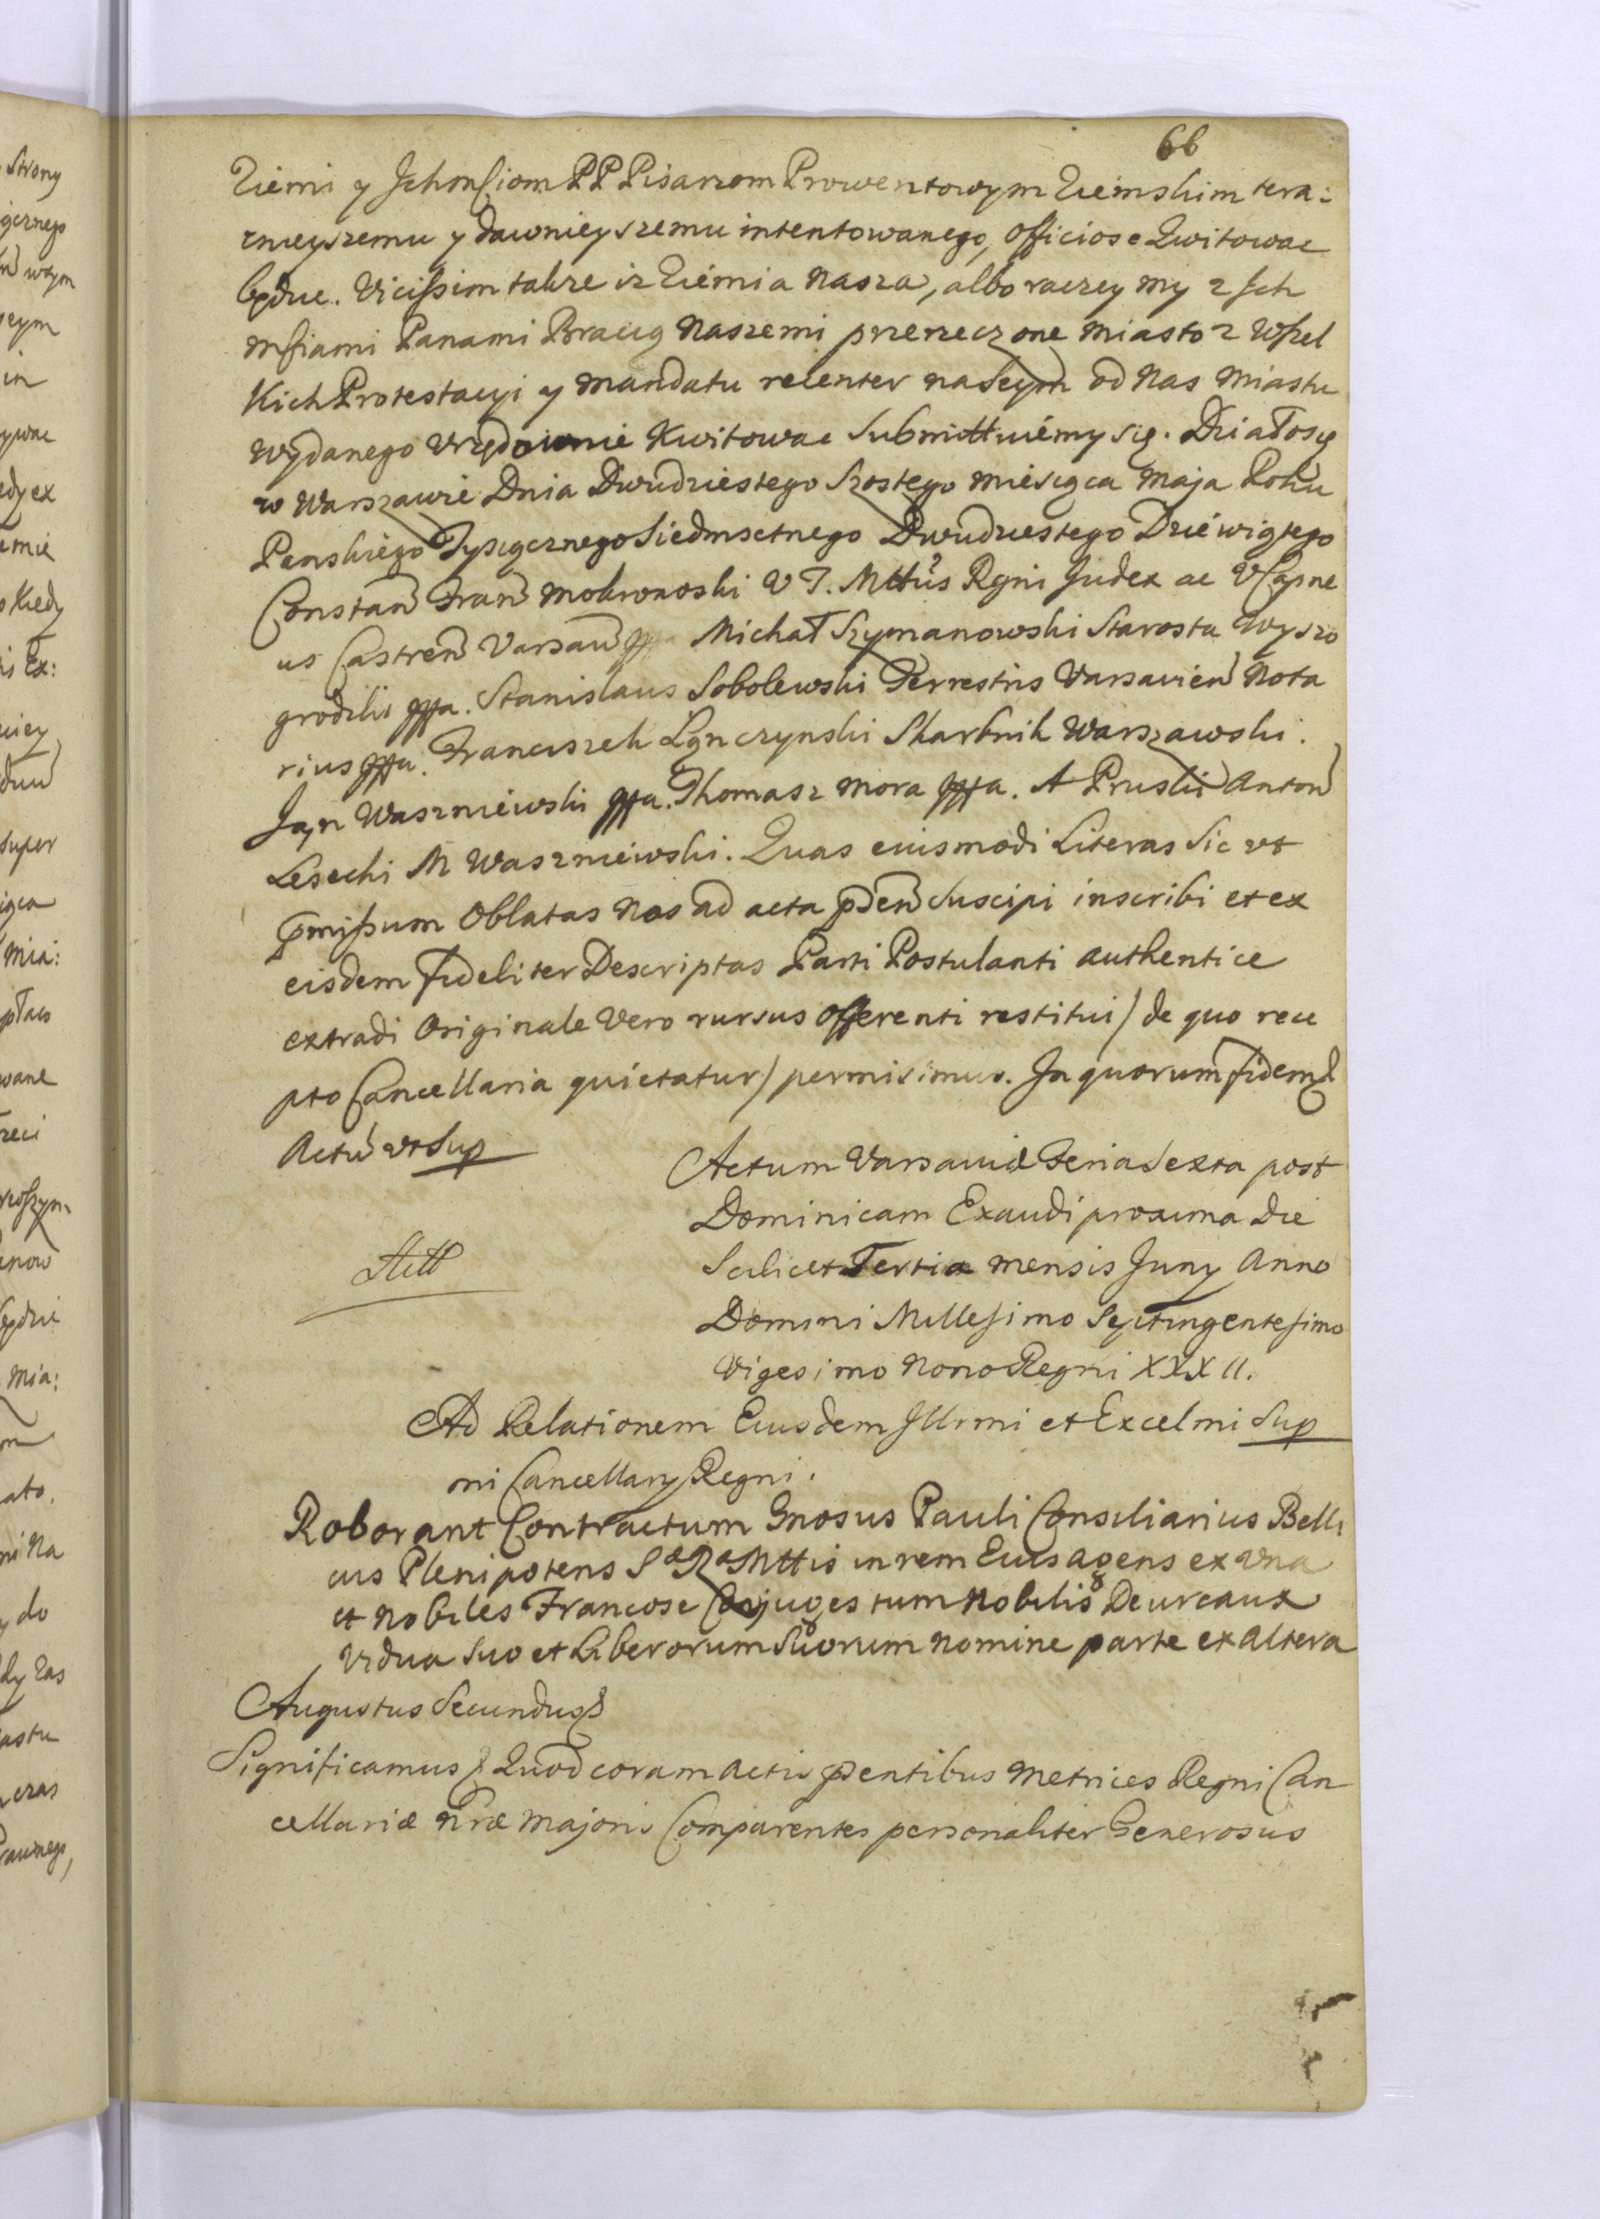 66
Ziemi y Jchmściom PP Pisarzom Prowentowym Ziemskim tera:
znieyszemu y dawnieyszemu intentowanego, officiose Qwitowac
będzie. Vicissim takze iz Ziemia Nasza, albo raczey my z Jch
mściami Panami Bracią Naszemi przerzeczone Miasto z Wszel
kich Protestacyi y Mandatu recenter na Seym od Nas Miastu
wydanego Vrzędownie Kwitowac Submittuiemy się. Działosię
w Warszawie Dnia Dwudziestego Szostego Miesiąca Maja Roku
Panskiego Tysiącznego Siedmsetnego Dwudziestego Dziewiątego
Constan Fran Mokronoski V T. Mttis Regni Judex ac VCapne
us Castren Varsavien Michał Szymanowski Starosta Wyszo
grodzki mppa. Stanislaus Sobolewski Terrestris Varsavien Nota
rius mppa. Franciszek Lączynski Skarbnik Warszawski.
Jan Waszniewski mppa. Thomasz Mora mppa. A Pruski Anton
Lesecki M Waszniewski. Quas eiusmodi Literas Sic vt
pmissum Oblatas Nos ad acta pden Suscipi inscribi et ex
eisdem fideliter Descriptas Parti Postulanti authentice
extradi Originale Vero rursus Offerenti restitui / de quo rece
pto Cancellaria quietatur / permisimus. In quorum fidem &
Actu vt Sup
Actum Varsaviæ Feria Sexta post
Dominicam Exaudi proxima Die
Scilicet Tertia mensis Juny Anno
Domini Millesimo Septingentesimo
Vigesimo Nono Regni XXXII.
Ad Relationem Eiusdem Jllrmi et Excelmi Sup
mi Cancellarij Regni.
Roborant Contractum Gnosus Pauli Consiliarius Belli
cus Plenipotens Sæ Ræ Mttis in rem Eius agens ex vna
et Nobiles Francose Conjuges tum Nobilis Deureaux
Vidua Suo et Liberorum Suorum Nomine parte ex Altera
Augustus Secundus &
Significamus & Quod coram Actis pntibus Metrices Regni Can
cellariæ nræ Majoris Comparentes personaliter Generosus